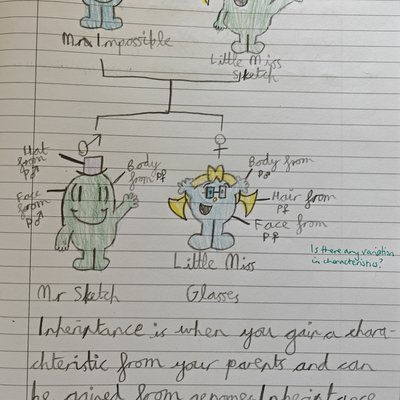 Mr Impossible
Little Miss
Sketch
♂ ♀
Hat
from
P♂
Body
from P♀
Face
from
P♂
Body from
P♀
Hair from
P♀
Face from
P♀
Is there any variation
in characteristics?
Mr Sketch
Little Miss
Glasses
Inheriptance is when you gain a chara-
chteristic from your parents and can
be gained from genomes Inheriptance